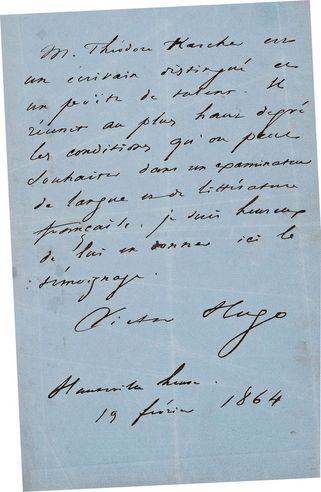 M. Théodore Karcher est
un écrivain distingué et
un poëte de talent. Il
réunit au plus haut degré
les conditions qu'on peut
souhaiter dans un examinateur
de langue et de littérature
française. je suis heureux
de lui en donner ici le
témoignage.
Victor Hugo
Hauteville house.
19 février 1864